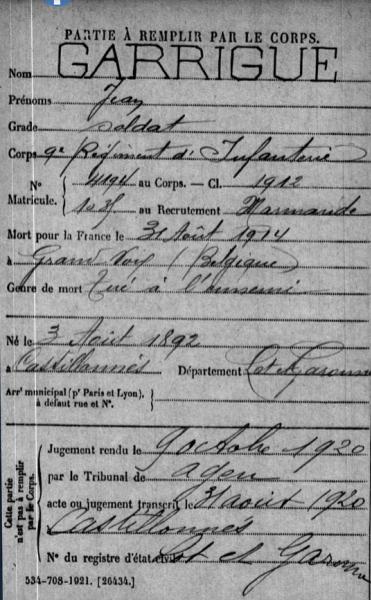 PARTIE À REMPLIR PAR LE CORPS.
Nom GARRIGUE
Prénoms Jean
Grade soldat
Corps 9e Régiment d'Infanterie
N° Matricule. 4194 au Corps. — Cl. 1912
au Recrutement Marmande
Mort pour la France le 31 Août 1914
à Grand Voir (Belgique)
Genre de mort Tué à l'ennemi
Né le 3 Août 1892
à Castillonnès Département Lot et Garonne
Arrt municipal (pr Paris et Lyon),
à défaut rue et N°.
Cette partie n'est pas à remplir par le Corps.
Jugement rendu le 9 octobre 1920
par le Tribunal de agen
acte ou jugement transcrit le 31 aout 1920
Castillonnes
N° du registre d'état civil Lot et Garonne
534-708-1921. [26434.]